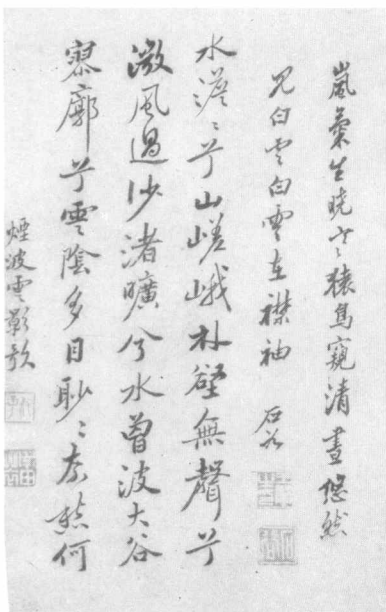 嵐氣生曉寒猿鳥窺清晝悠然
見白雲白雲在襟袖 石谷
水澹〻兮山嵯峨林壑無聲兮
激風過沙渚曠兮水曾波大谷
寥廓兮雲陰多目眇〻奈愁何
煙波雲影歌